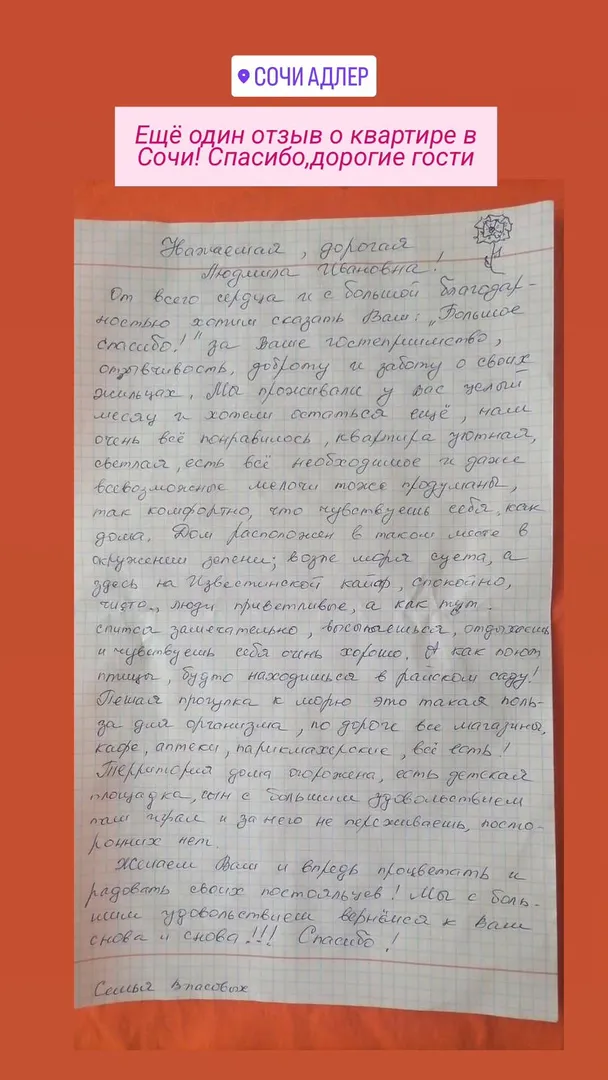 СОЧИ АДЛЕР
Ещё один отзыв о квартире в
Сочи! Спасибо,дорогие гости
Уважаемая, дорогая
Людмила Ивановна!
От всего сердца и с большой благодар-
ностью хотим сказать Вам: „Большое
спасибо!" за Ваше гостеприимство,
отзывчивость, доброту и заботу о своих
жильцах. Мы проживали у вас целый
месяц и хотели остаться ещё, нам
очень всё понравилось, квартира уютная,
светлая, есть всё необходимое и даже
всевозможные мелочи тоже продуманы,
так комфортно, что чувствуешь себя, как
дома. Дом расположен в таком месте в
окружении зелени; возле моря суета, а
здесь на Известинской кайф, спокойно,
чисто, люди приветливые, а как тут
спится замечательно, высыпаешься, отдыхаешь
и чувствуешь себя очень хорошо. А как поют
птицы, будто находишься в райском саду!
Пешая прогулка к морю это такая поль-
за для организма, по дороге все магазины,
кафе, аптеки, парикмахерские, всё есть!
Территория дома огорожена, есть детская
площадка, сын с большим удовольствием
там играл и за него не переживаешь, посто-
ронних нет.
Желаем Вам и впредь процветать и
радовать своих постояльцев! Мы с боль-
шим удовольствием вернёмся к Вам
снова и снова!!! Спасибо!
Семья Власовых